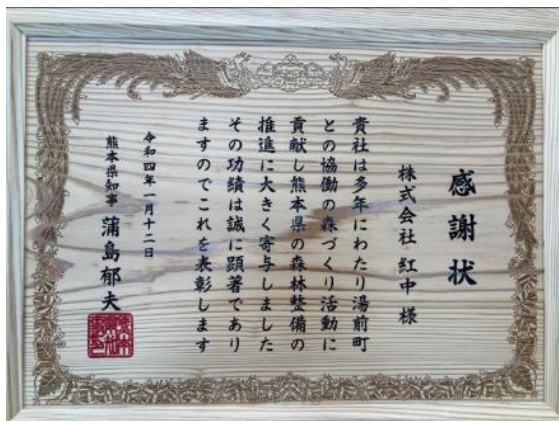 感謝状
株式会社 紅中 様
貴社は多年にわたり湯前町
との協働の森づくり活動に
貢献し熊本県の森林整備の
推進に大きく寄与しました
その功績は誠に顕著であり
ますのでこれを表彰します
令和四年一月十二日
熊本県知事 蒲島郁夫